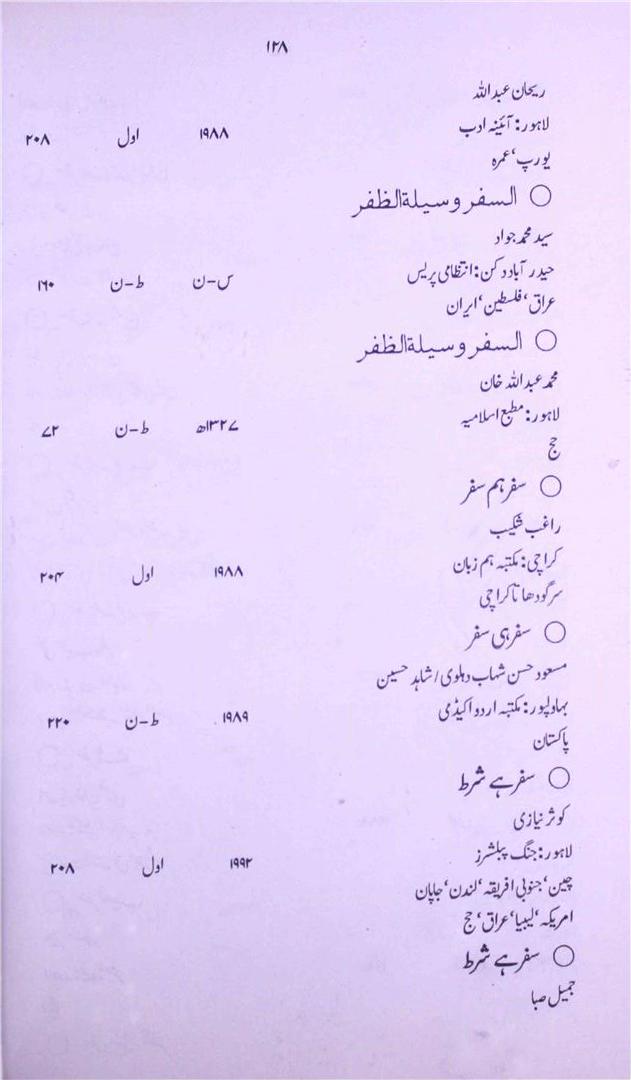 ۱۲۸
ریحان عبداللہ
لاہور: آئینہ ادب ۱۹۸۸ اول ۲۰۸
یورپ، عمرہ
○ السفر وسیلۃ الظفر
سید محمد جواد
حیدر آباد دکن: انتظامی پریس س-ن ط-ن ۱۶۰
عراق، فلسطین، ایران
○ السفر وسیلۃ الظفر
محمد عبداللہ خان
لاہور: مطبع اسلامیہ ۱۳۲۷ھ ط-ن ۷۲
حج
○ سفر ہم سفر
راغب شکیب
کراچی: مکتبہ ہم زبان ۱۹۸۸ اول ۲۰۴
سرگودھا تا کراچی
○ سفر ہی سفر
مسعود حسن شہاب دہلوی / شاہد حسین
بہاولپور: مکتبہ اردو اکیڈمی ۱۹۸۹ ط-ن ۲۲۰
پاکستان
○ سفر ہے شرط
کوثر نیازی
لاہور: جنگ پبلشرز ۱۹۹۲ اول ۲۰۸
چین، جنوبی افریقہ، لندن، جاپان
امریکہ، لیبیا، عراق، حج
○ سفر ہے شرط
جمیل صبا